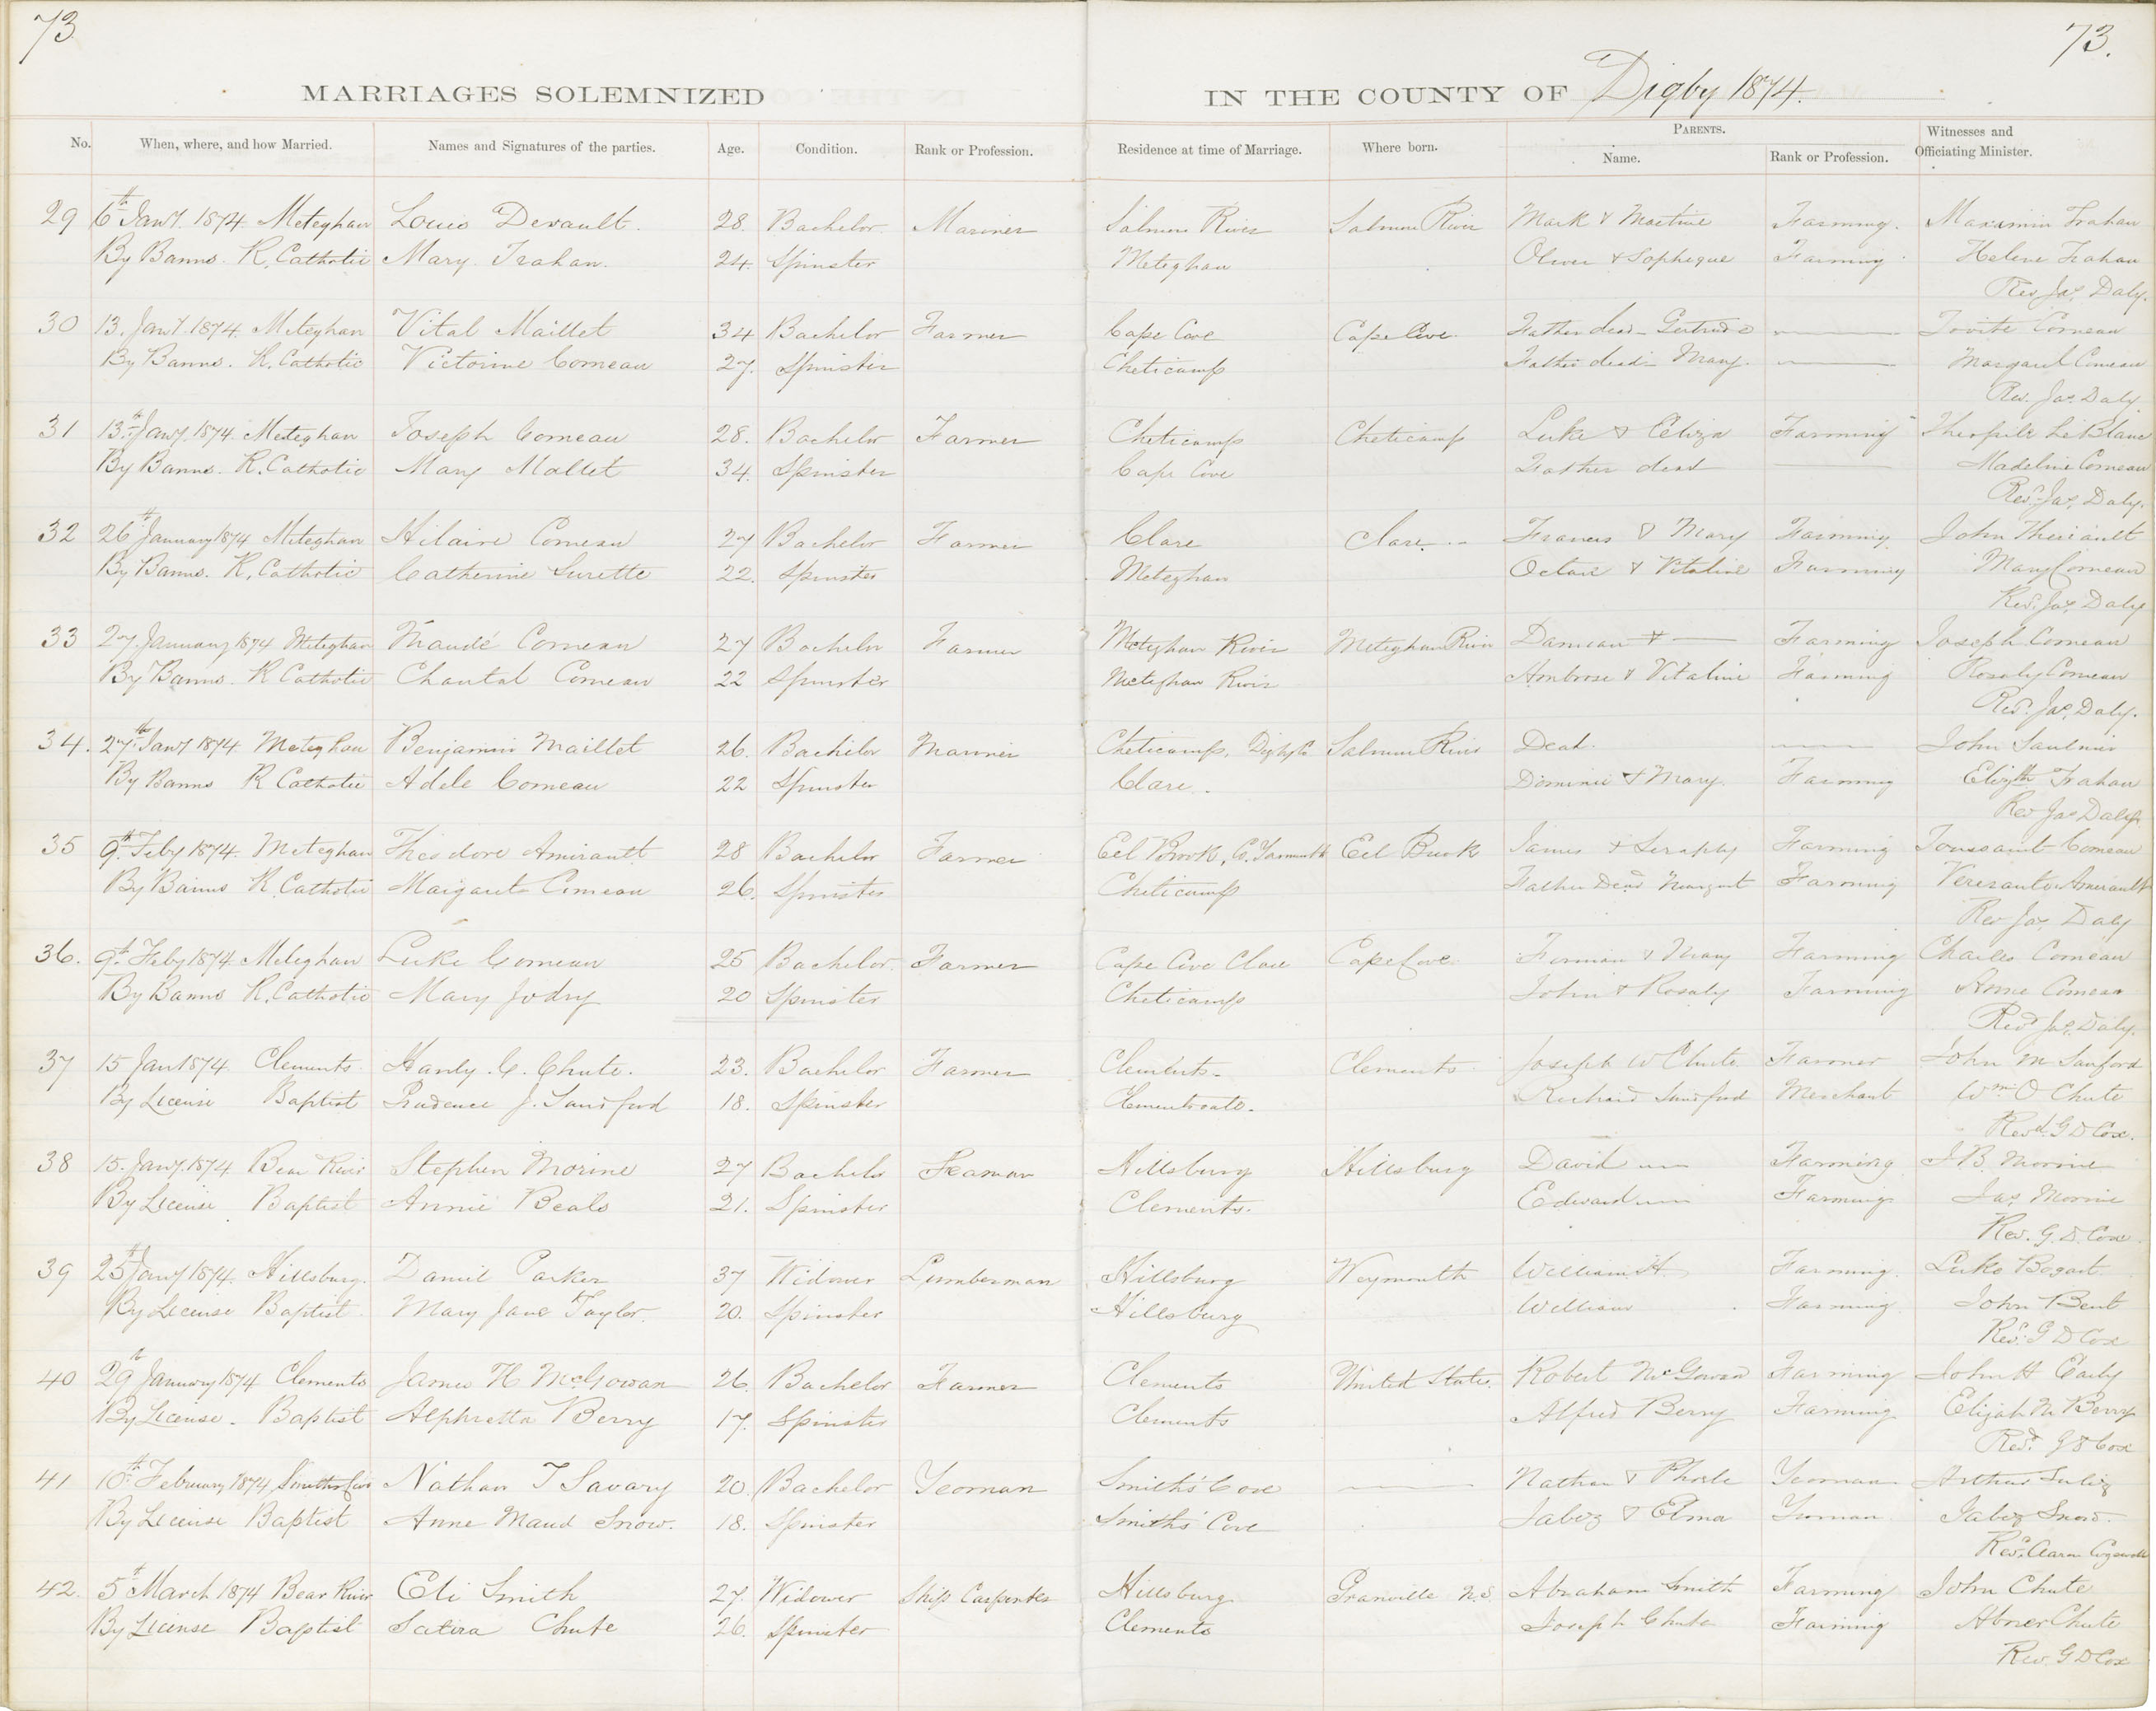 73
73.
MARRIAGES SOLEMNIZED IN THE COUNTY OF Digby 1874.
No. When, where, and how Married. Names and Signatures of the parties. Age. Condition. Rank or Profession. Residence at time of Marriage. Where born. PARENTS. Name. Rank or Profession. Witnesses and Officiating Minister.
29 6th Jany. 1874 Meteghan Louis Devault. 28. Bachelor Mariner Salmon River Salmon River Mark & Martine Farming. Maximin Trahan
By Banns. R. Catholic Mary Trahan. 24. Spinster Meteghan Oliver & Sopheque Farming Helene Trahan
Rev Jas. Daly.
30 13. Jany. 1874. Meteghan Vital Maillet 34 Bachelor Farmer Cape Cove Cape Cove Father dead - Gertrude Jovite Comeau
By Banns. R. Catholic Victorine Comeau 27. Spinster Cheticamp Father dead - Mary. Margaret Comeau
Rev. Jas. Daly
31 13th Jany. 1874. Meteghan Joseph Comeau 28. Bachelor Farmer Cheticamp Cheticamp Luke & Eliza Farming Theophile LeBlanc
By Banns. R. Catholic Mary Mallet 34. Spinster Cape Cove Father dead Madeline Comeau
Revd. Jas. Daly.
32 26th January 1874 Meteghan Hilaire Comeau 27 Bachelor Farmer Clare Clare Francis & Mary Farming John Theriault
By Banns. R. Catholic Catherine Surette 22. Spinster Meteghan Octave & Vitaline Farming Mary Comeau
Revd. Jas. Daly
33 27. January 1874 Meteghan Maudé Comeau 27 Bachelor Farmer Meteghan River Meteghan River Damean & Farming Joseph Comeau
By Banns. R Catholic Chantal Comeau 22 Spinster Meteghan River Ambrose & Vitaline Farming Rosaly Comeau
Revd. Jas. Daly.
34. 27th Jany 1874 Meteghan Benjamin Maillet 26. Bachelor Mariner Cheticamp, Digby Co Salmon River Dead. John Saulnier
By Banns R Catholic Adele Comeau 22 Spinster Clare. Dominic & Mary. Farming Elizth Trahan
Rev Jas Daly
35 9th Feby 1874. Meteghan Theodore Amirault 28 Bachelor Farmer Eel Brook, Co. Yarmouth Eel Brook James & Seraphy Farming Toussaint Comeau
By Banns R. Catholic Margaret Comeau 26. Spinster Cheticamp Father Dead Margaret Farming Amirault
Rev Jas. Daly
36. 9th Feby 1874 Meteghan Luke Comeau 25 Bachelor. Farmer Cape Cove Clare Cape Cove. Firman & Mary Farming Charles Comeau
By Banns R. Catholic Mary Jodry 20 Spinster Cheticamp John & Rosaly Farming Anne Comeau
Revd Jas. Daly.
37 15 Jan 1874. Clements. Handy. C. Chute. 23. Bachelor Farmer Clements Clements Joseph W Chute Farmer John M Sanford
By License Baptist Prudence J. Sandford 18. Spinster Clementsvale. Richard Sandford Merchant Wm O Chute
Revd. G D Cox.
38 15. Jany. 1874 Bear River Stephen Morine 27 Bachelor Seaman Hillsburg Hillsburg David Farming J B. Morine
By License Baptist Annie Beals 21. Spinster Clements. Edward Farming Jas Morine
Rev. G. D. Cox
39 25th Jany 1874. Hillsburg. Daniel Parker 37 Widower Lumberman Hillsburg Weymouth William H Farming. Luke Bogart.
By License Baptist Mary Jane Taylor. 20. Spinster Hillsburg William Farming. John Bent
Revd. G D Cox
40 29th January 1874 Clements James H McGowan 26. Bachelor Farmer Clements United States. Robert McGowan Farming John H Early
By License. Baptist Alphretta Berry 17. Spinster Clements Alfred Berry Farming Elijah M Berry
Revd. G D Cox
41 10th February 1874 Smiths Cove Nathan T Savary 20. Bachelor Yeoman Smiths' Cove Nathan & Phoebe Yeoman Arthur
By License Baptist Anne Maud Snow. 18. Spinster Smiths' Cove Jabez & Elma Yeoman Jabez Snow.
Revd. Aaron Cogswell
42. 5th March 1874 Bear River Eli Smith 27. Widower Ship Carpenter Hillsburg Granville N.S. Abraham Smith Farming John Chute
By License Baptist Satira Chute 26. Spinster Clements Joseph Chute Farming Abner Chute
Rev. G D Cox